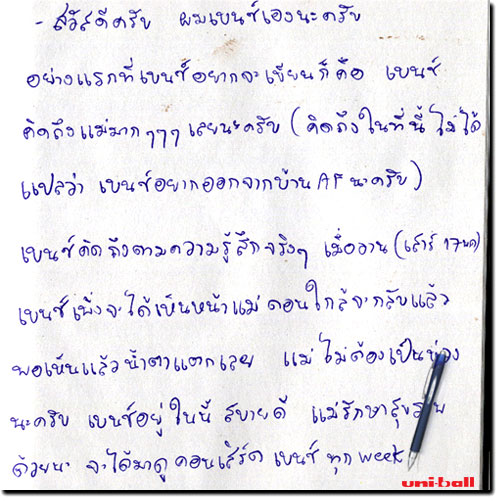 - สวัสดีครับ ผมเบนซ์เองนะครับ
อย่างแรกที่เบนซ์อยากจะเขียนก็คือ เบนซ์
คิดถึงแม่มากๆๆๆ เลยนะครับ (คิดถึงในที่นี้ ไม่ได้
แปลว่า เบนซ์อยากออกจากบ้าน AF นะครับ)
เบนซ์คิดถึงตามความรู้สึกจริงๆ เมื่อวาน (เสาร์ 17 นค)
เบนซ์เพิ่งจะได้เห็นหน้าแม่ ตอนใกล้จะกลับแล้ว
พอเห็นแล้วน้ำตาแตกเลย แม่ไม่ต้องเป็นห่วง
นะครับ เบนซ์อยู่ในนี้ สบายดี แม่รักษาสุขภาพ
ด้วยนะ จะได้มาดูคอนเสิร์ต เบนซ์ ทุก week
uni-ball